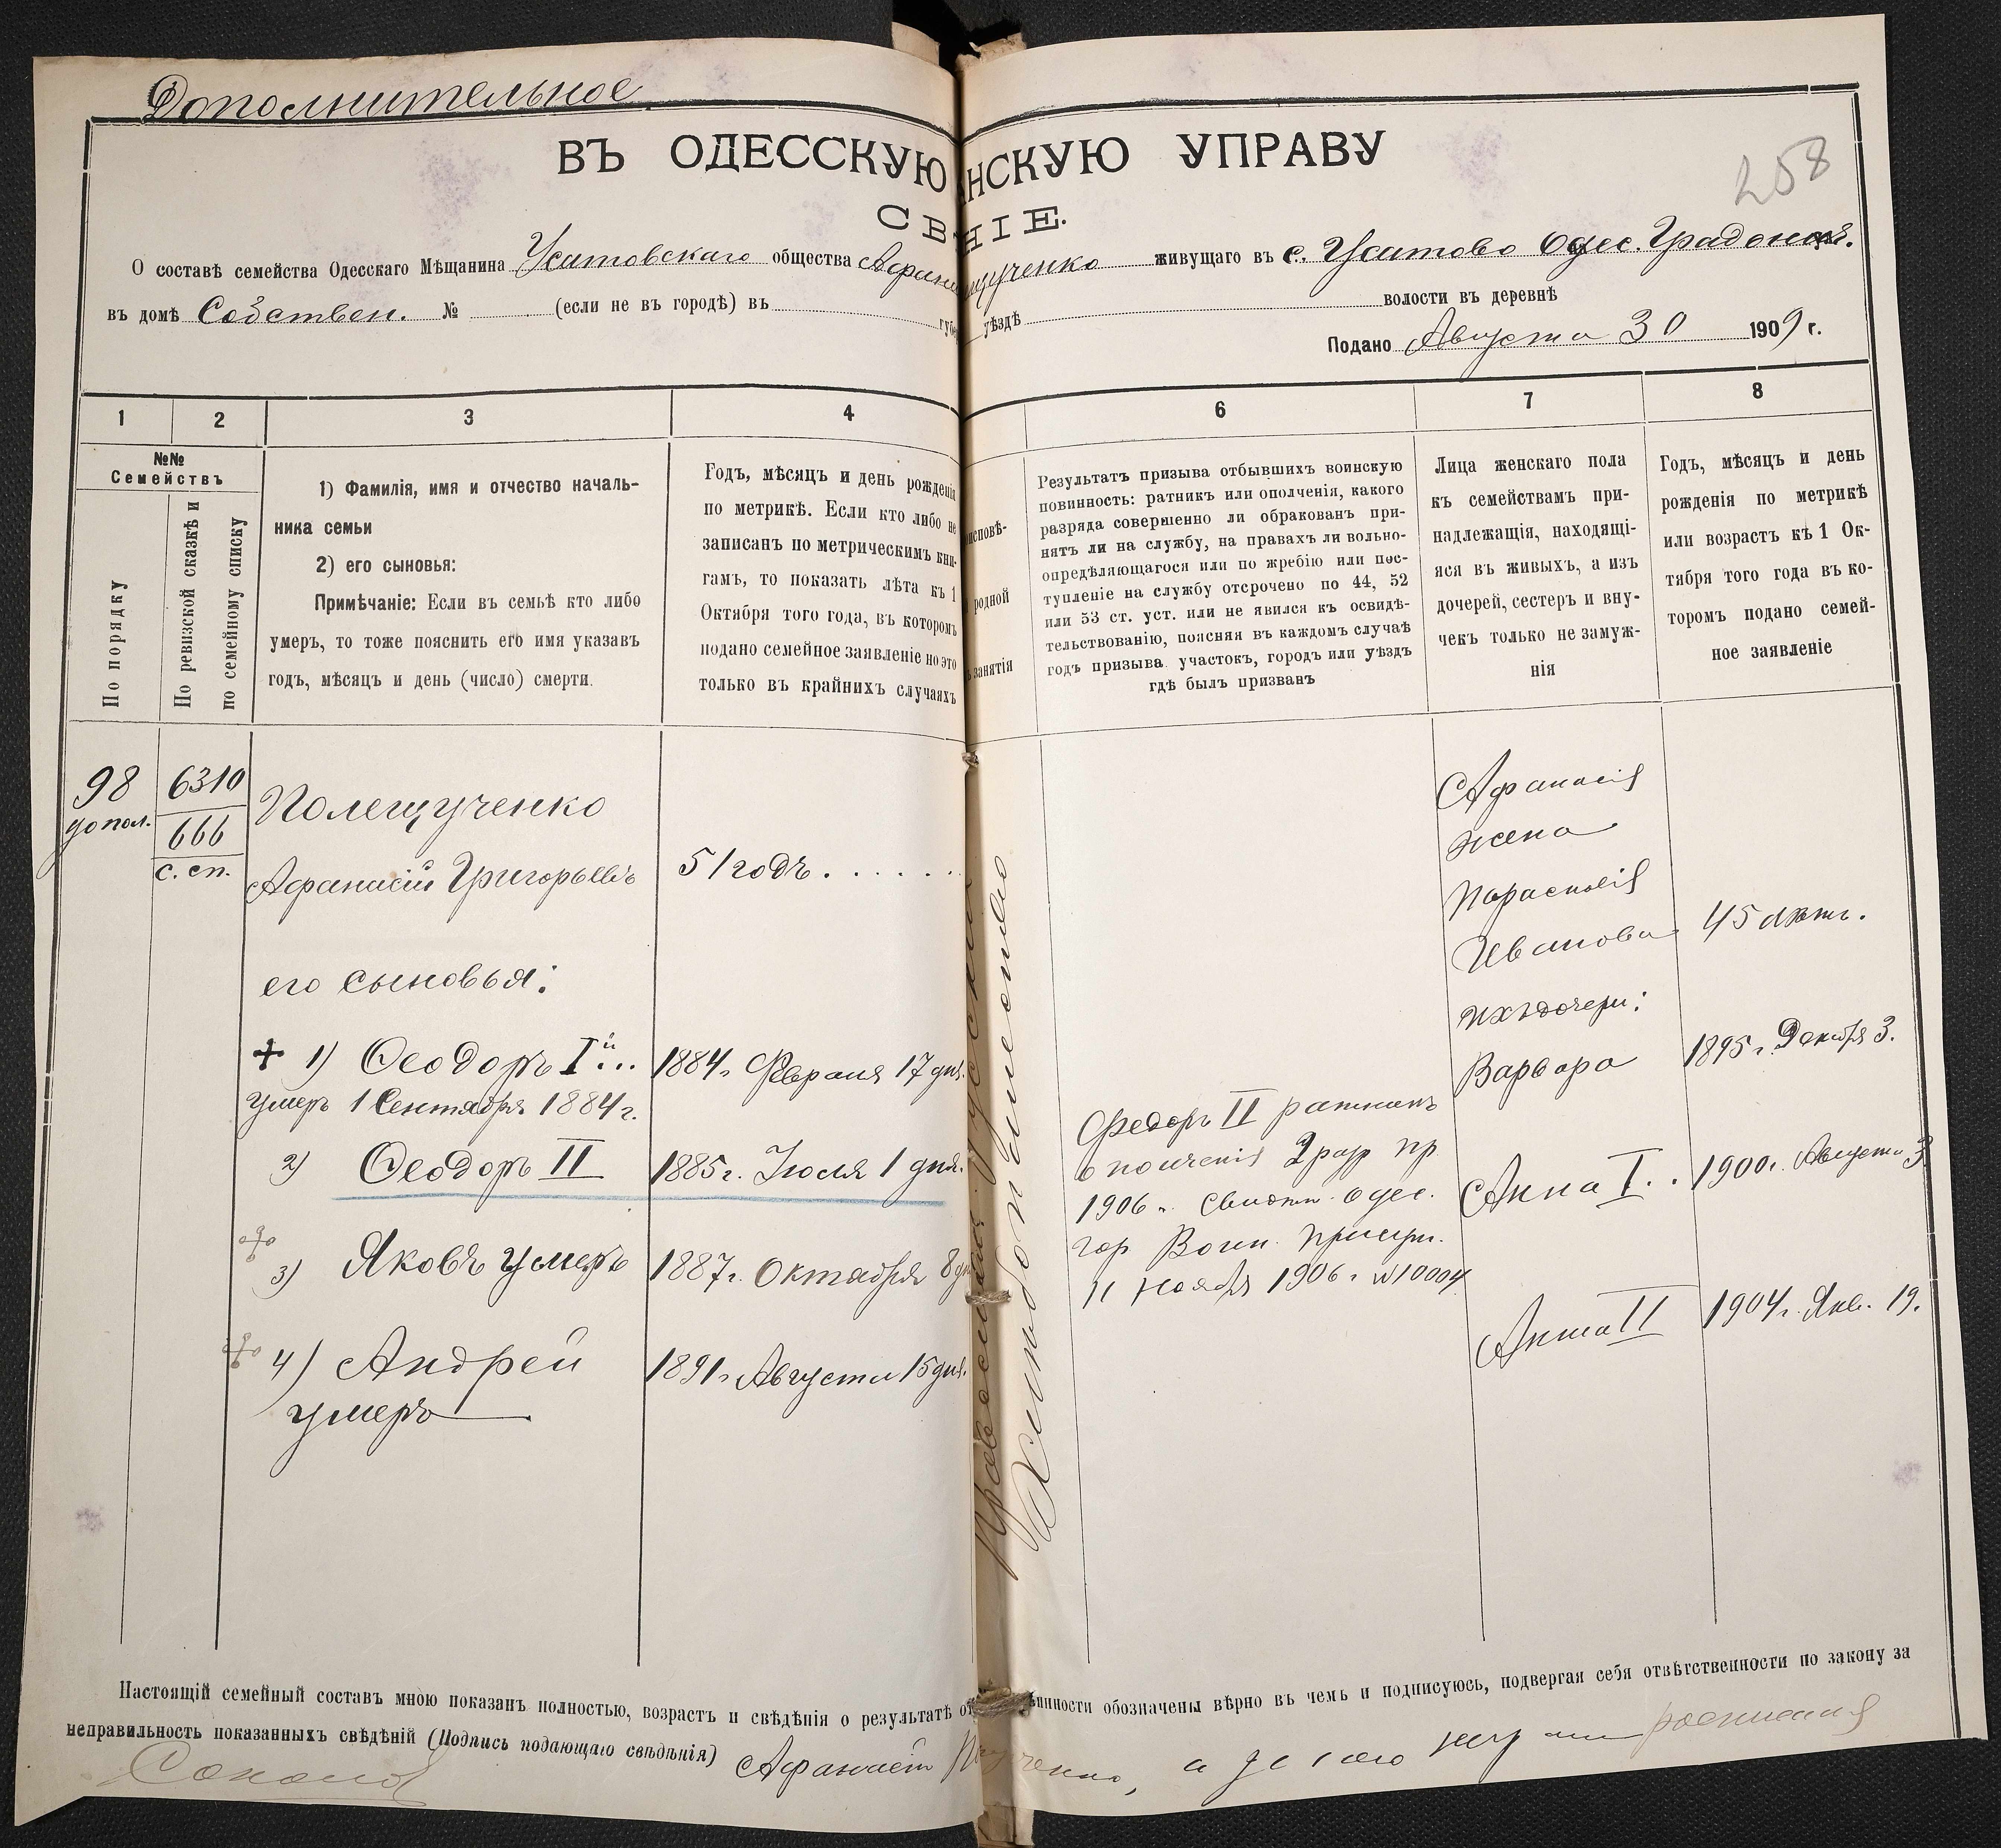 Дополнительное.
ВЪ ОДЕССКУЮ НСКУЮ УПРАВУ
258
СВ НІЕ.
О составѣ семейства Одесскаго Мѣщанина Усатовскаго общества Афан щученко живущаго въ с. Усатово Одес. Градонач.
въ домѣ Собствен. № (если не въ городѣ) въ губе уѣздѣ волости въ деревнѣ
Подано Августа 30 1909 г.
1 2 3 4 6 7 8
№№
Семействъ
По порядку
По ревизской сказкѣ и
по семейному списку
1) Фамилія, имя и отчество началь-
ника семьи
2) его сыновья:
Примѣчаніе: Если въ семьѣ кто либо
умеръ, то тоже пояснить его имя указавъ
годъ, мѣсяцъ и день (число) смерти.
Годъ, мѣсяцъ и день рожденія
по метрикѣ. Если кто либо не
записанъ по метрическимъ кни-
гамъ, то показать лѣта къ 1
Октября того года, въ которомъ
подано семейное заявленіе но это
только въ крайнихъ случаяхъ
исповѣ-
родной
занятія
Результатъ призыва отбывшихъ воинскую
повинность: ратникъ или ополченія, какого
разряда совершенно ли обракованъ при-
нятъ ли на службу, на правахъ ли вольно-
опредѣляющагося или по жребію или пос-
тупленіе на службу отсрочено по 44, 52
или 53 ст. уст. или не явился къ освидѣ-
тельствованію, поясняя въ каждомъ случаѣ
годъ призыва участокъ, городъ или уѣздъ
гдѣ былъ призванъ
Лица женскаго пола
къ семействамъ при-
надлежащія, находящі-
яся въ живыхъ, а изъ
дочерей, сестеръ и вну-
чекъ только не замуж-
нія
Годъ, мѣсяцъ и день
рожденія по метрикѣ
или возрастъ къ 1 Ок-
тября того года въ ко-
торомъ подано семей-
ное заявленіе
98
допол.
6310
666
с. сп.
Полещученко
Афанасій Григорьевъ
51 годъ......
его сыновья:
+ 1) Ѳеодоръ Iй... 1884г. Февраля 17 дня.
умеръ 1 Сентября 1884 г.
2) Ѳеодоръ II 1885 г. Іюля 1 дня.
3) Яковъ умеръ 1887 г. Октября 8 дн
4) Андрей 1891 г. Августа 15 дня.
умеръ
Православный русскій
Хлѣбопашество
Федоръ II ратникъ
ополченія 2 разр пр
1906 г. Свидѣт. Одес.
гор Воин. Присут.
11 Ноября 1906 г. №10004
Афанасія
жена
Параскевія
Иванова 45 лѣтъ.
ихъ дочери:
Варвара 1895 г. Декабря 3.
Анна I.. 1900 г. Августа 3
Анна II 1904 г. Янв. 19.
Настоящій семейный составъ мною показанъ полностью, возрастъ и свѣдѣнія о результатѣ от инности обозначены вѣрно въ чемъ и подписуюсь, подвергая себя отвѣтственности по закону за
неправильность показанныхъ свѣдѣній (Подпись подающаго свѣдѣнія) Афанасій По ченко, а за него